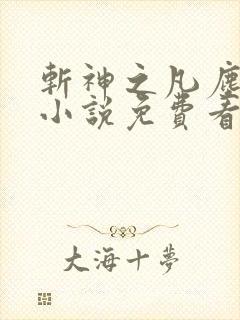 斬神之凡塵
小說免費看
大海十夢